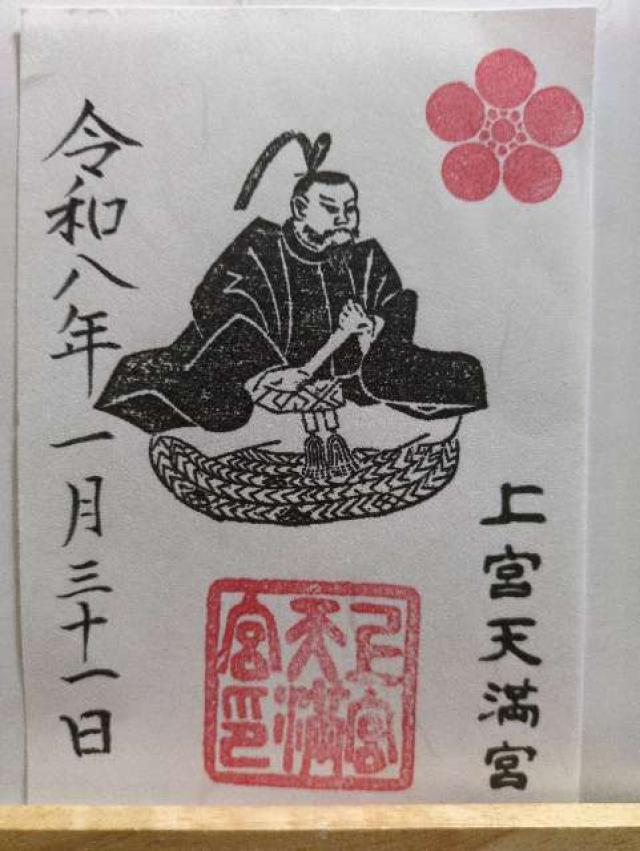 上宮天満宮
上宮
天満
宮印
令和八年一月三十一日